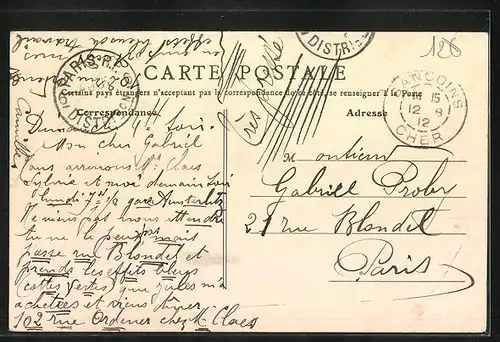 126
DISTRIB
CARTE POSTALE
Certains pays étrangers n'acceptant pas la correspondance de ce côté, se renseigner à la Poste
Correspondance
Adresse
SANCOINS
15
12 8
12
CHER
PARIS
DISTRIB
très pressé
Camille
Dimanche soir
Mon cher Gabriel
Nous arrivons Mr Claes
Sylvie et moi demain soir
lundi 7h 1/2 gare Austerlitz
Ne viens pas nous attendre
tu ne le peux pas mais
passe rue Blondel et
prends les effets bleus
(cottes vestes) que Jules m'a
achetées et viens dîner
102 rue Ordener chez Mr Claes
Monsieur
Gabriel Proby
21 rue Blondel
Paris